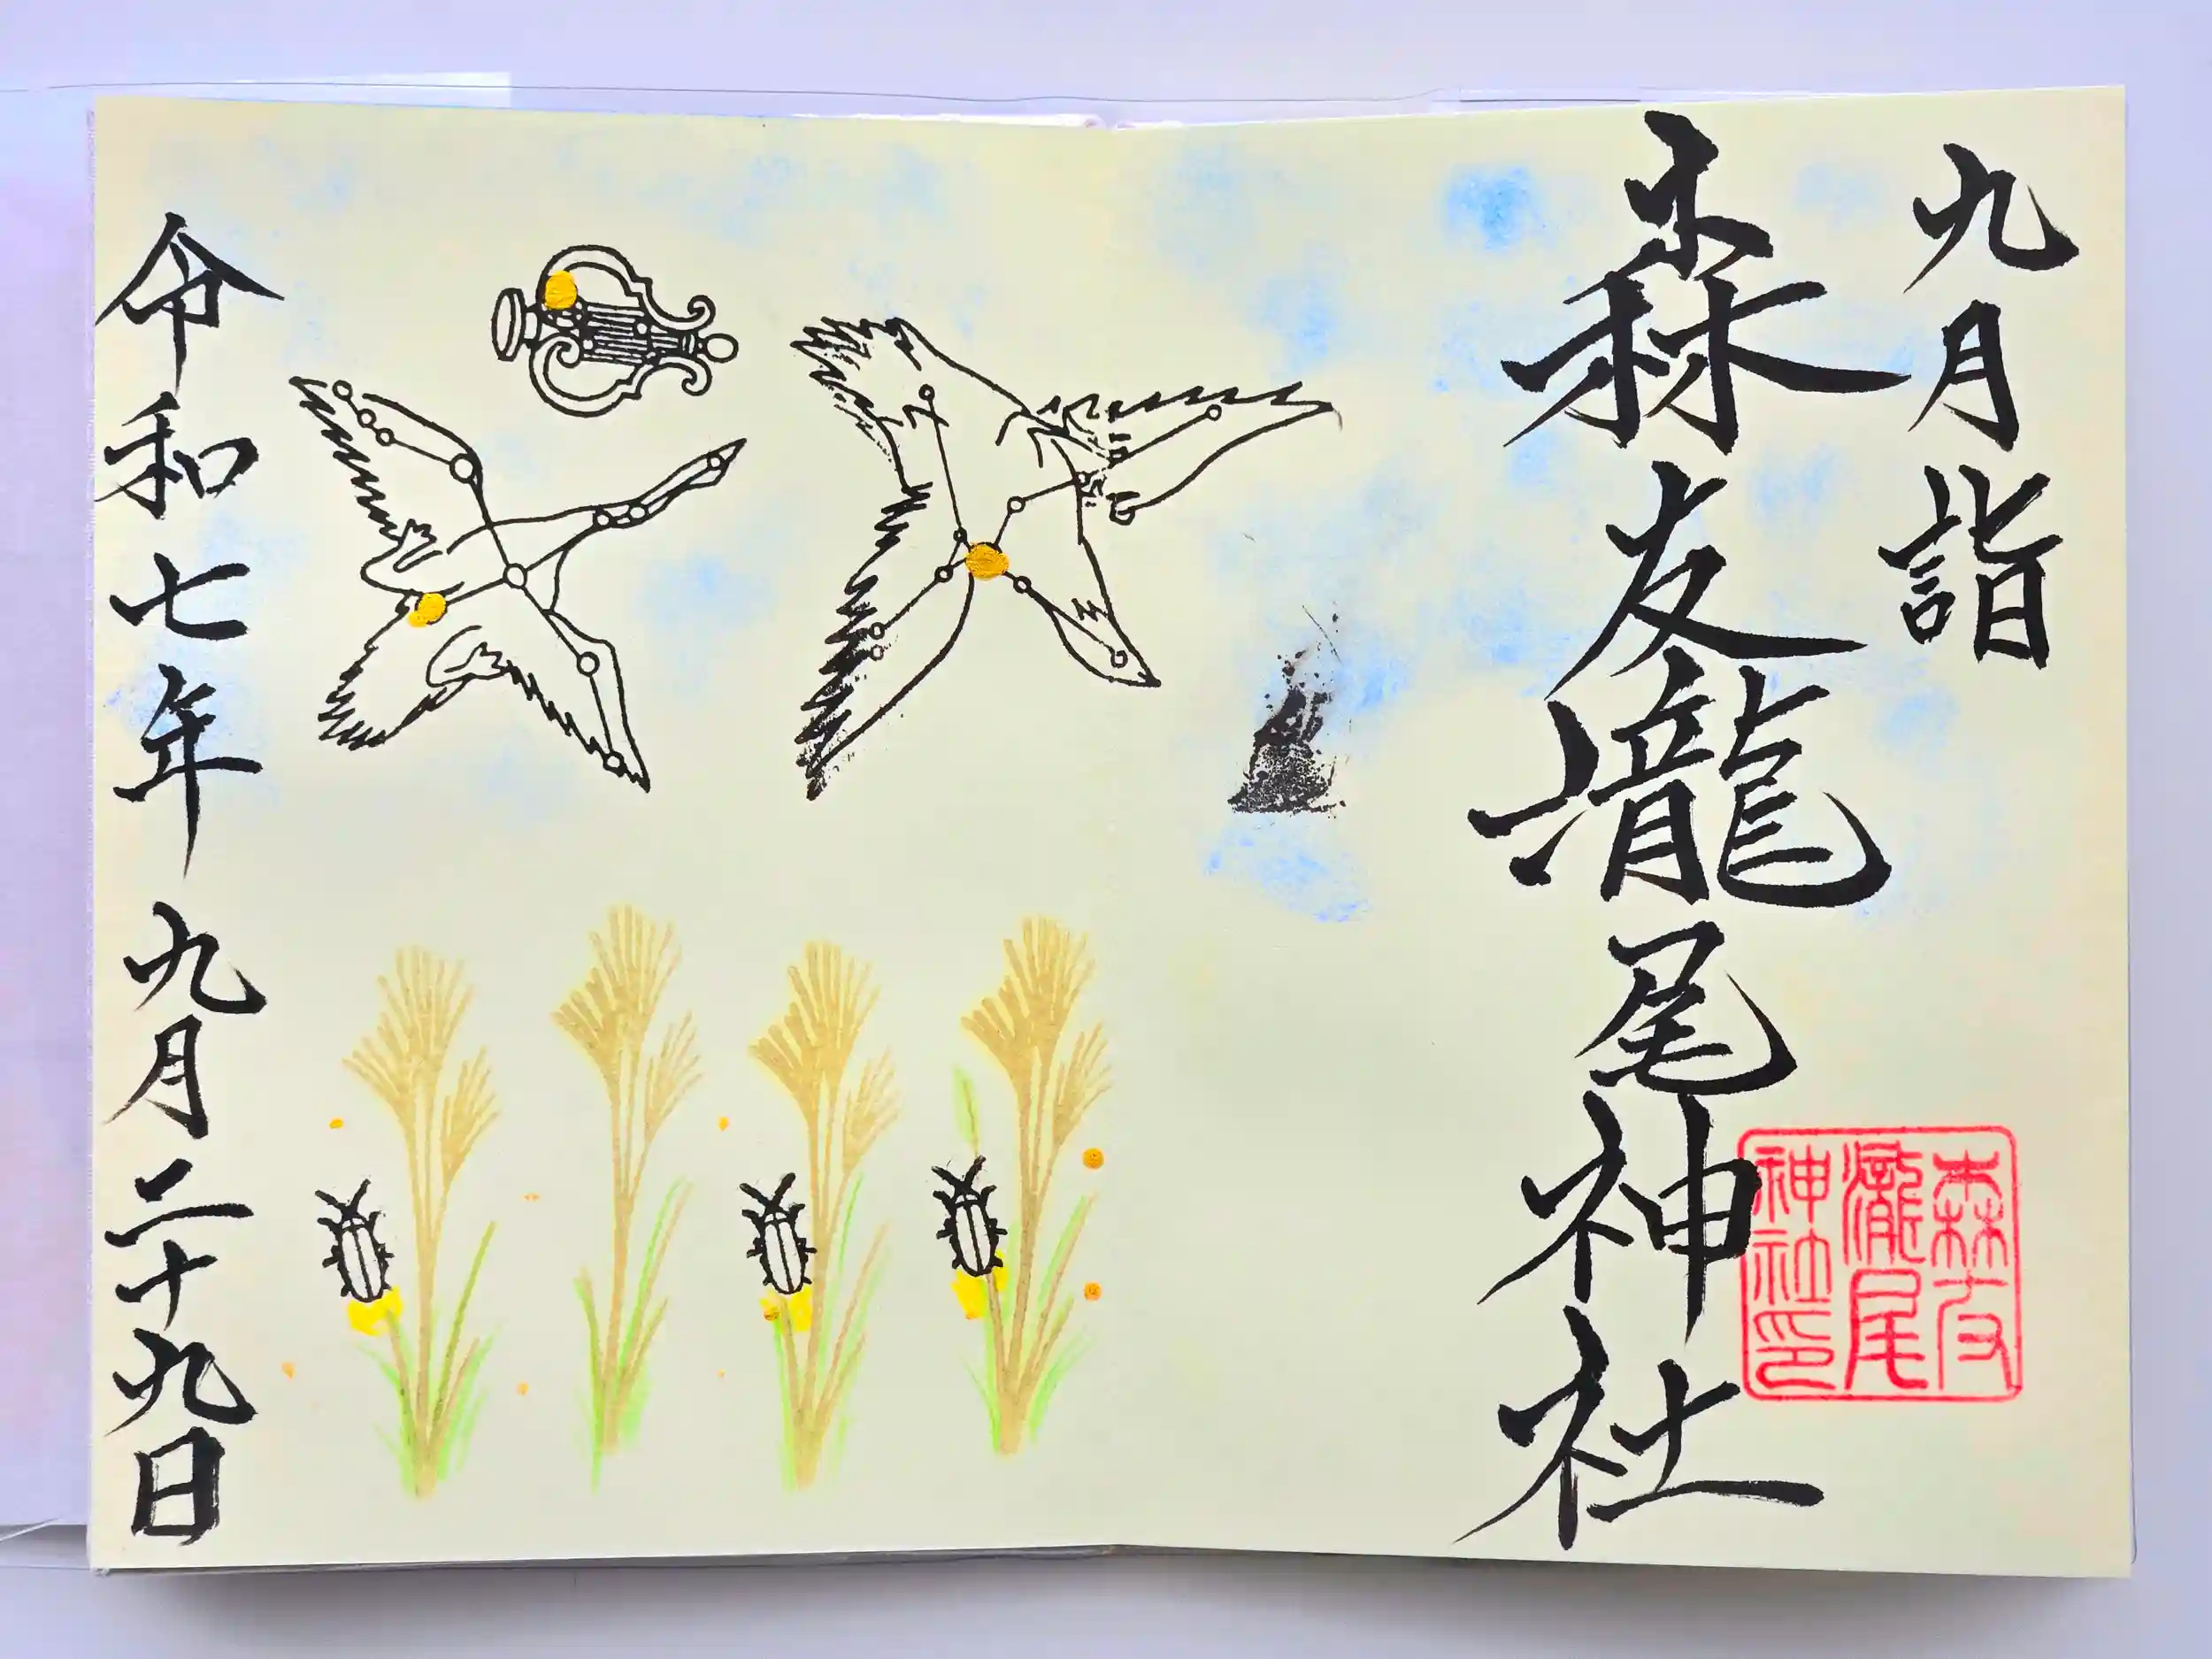 九月詣
森友瀧尾神社
森友
瀧尾
神社印
令和七年九月二十九日